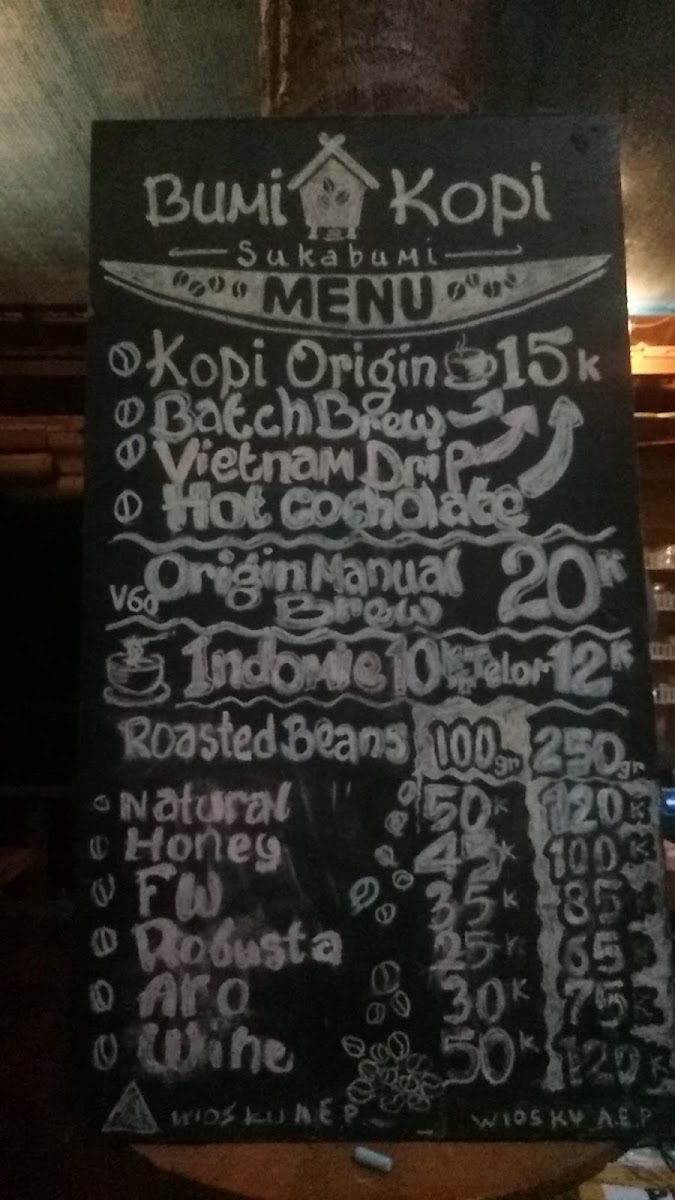 BUMI KOPI
SukabuMi
MENU
Kopi Origin 15K
BatchBrew
VietnaM Drip
Hot cocholate
V60 Origin Manual 20K
Brew
Indomie 10K + Telor 12K
Roasted Beans 100gr 250gr
Natural 50K 120K
Honey 45K 100K
FW 35K 85K
Robusta 25K 65K
Aro 30K 75K
Wine 50K 120K
WIOSKU A.E.P WIOSKU A.E.P